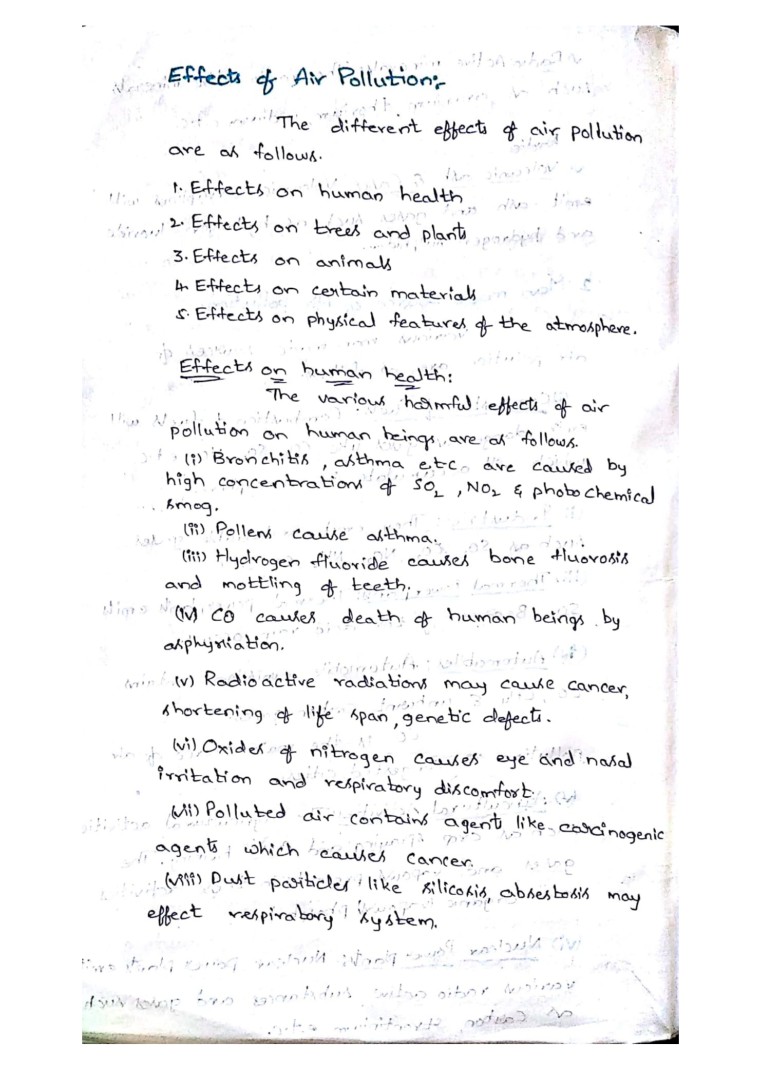 Effects of Air Pollution:-
The different effects of air pollution
are as follows.
1. Effects on human health
2. Effects on trees and plants
3. Effects on animals
4. Effects on certain materials
5. Effects on physical features of the atmosphere.
Effects on human health:
The various harmful effects of air
pollution on human beings are as follows.
(i) Bronchitis, asthma etc are caused by
high concentrations of SO2, NO2 & photochemical
smog.
(ii) Pollens cause asthma.
(iii) Hydrogen fluoride causes bone fluorosis
and mottling of teeth.
(iv) CO causes death of human beings by
asphyniation.
(v) Radioactive radiations may cause cancer,
shortening of life span, genetic defects.
(vi) Oxides of nitrogen causes eye and nasal
irritation and respiratory discomfort.
(vii) Polluted air contains agent like carcinogenic
agents which causes cancer.
(viii) Dust particles like silicosis, absestosis may
effect respiratory system.